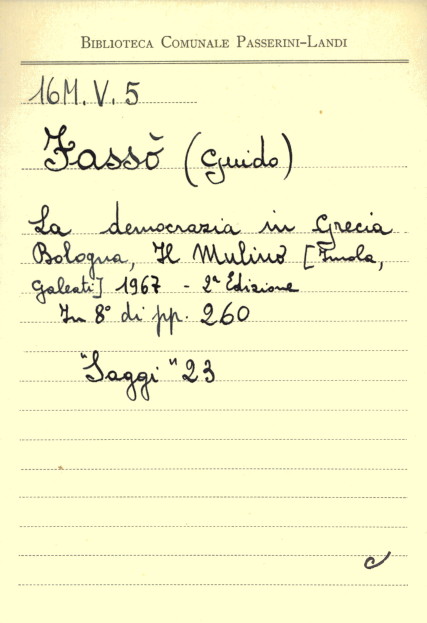 BIBLIOTECA COMUNALE PASSERINI-LANDI
16M. V. 5
Fassò (Guido)
La democrazia in Grecia
Bologna, Il Mulino [Imola,
Galeati] 1967 - 2ª Edizione
In 8° di pp. 260
"Saggi" 23
c